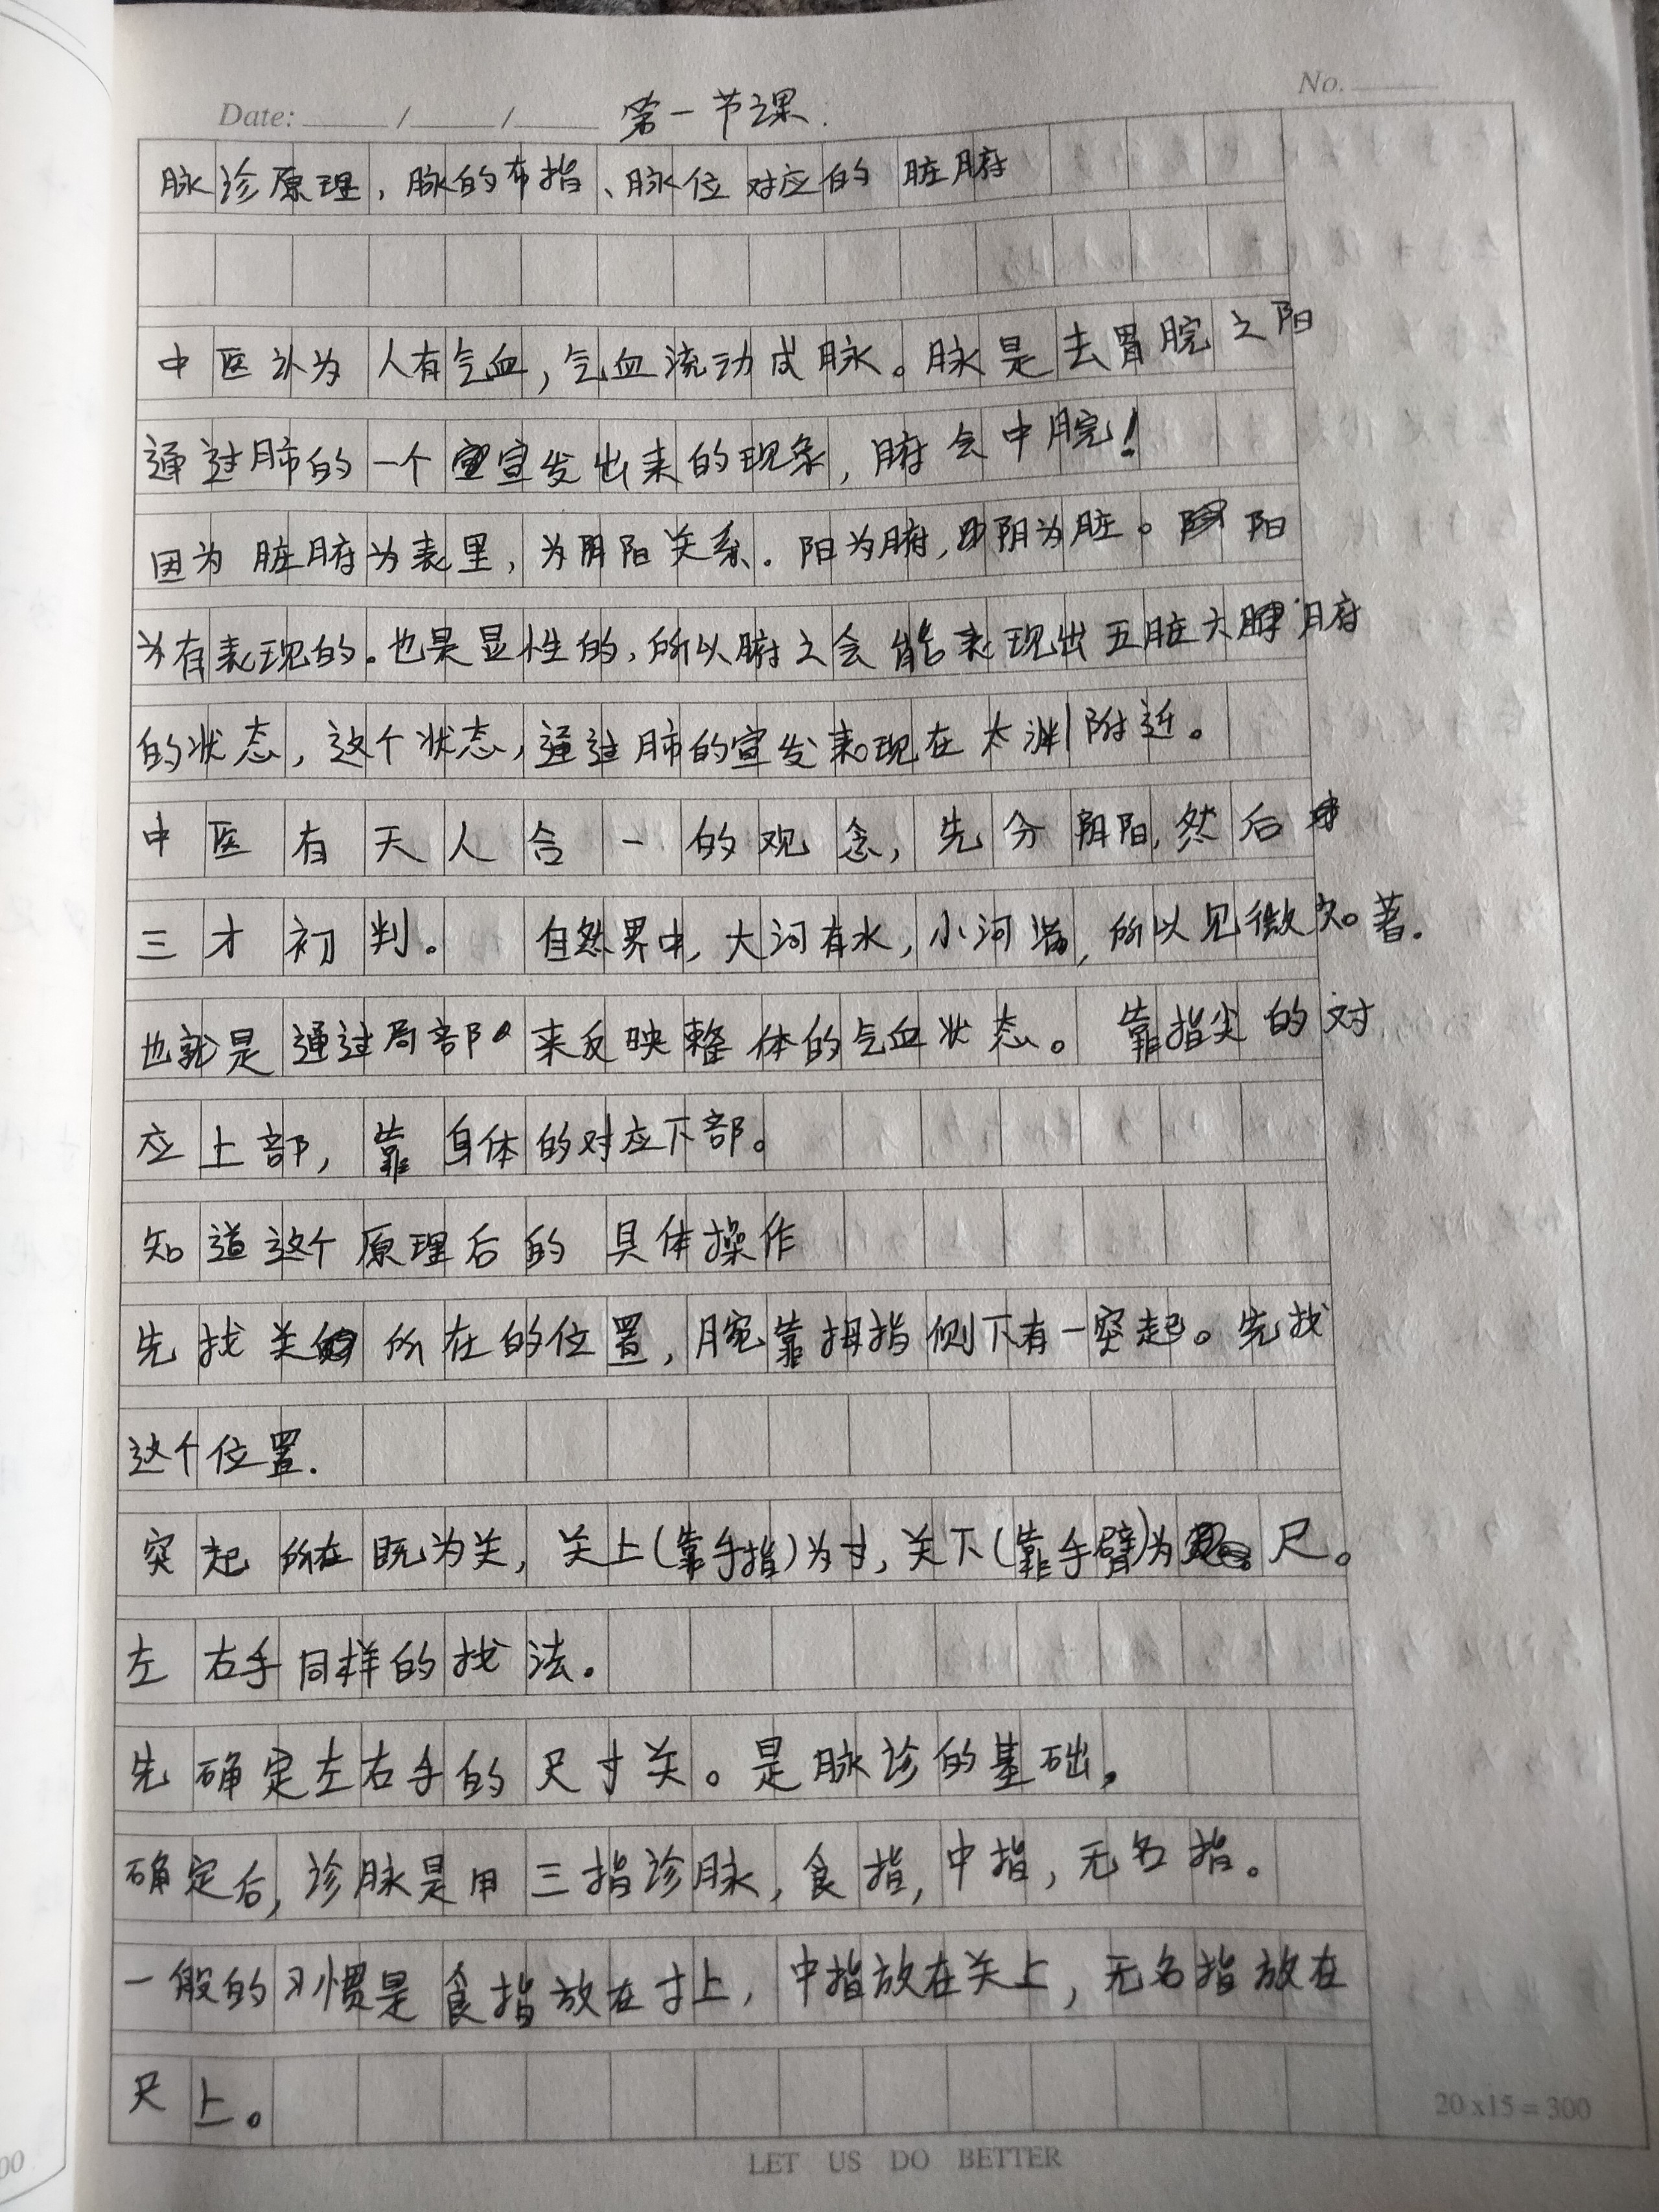 No.
Date: / / 第一节课.
脉诊原理,脉的布指、脉位对应的脏腑
中医认为人有气血,气血流动成脉。脉是去胃脘之阳
通过肺的一个宣发出来的现象,腑会中脘!
因为脏腑为表里,为阴阳关系.阳为腑,阴为脏。阳
为有表现的。也是显性的,所以腑之会能表现出五脏六腑
的状态,这个状态,通过肺的宣发表现在太渊附近。
中医有天人合一的观念,先分阴阳,然后
三才初判。自然界中,大河有水,小河满,所以见微知著.
也就是通过局部来反映整体的气血状态。靠指尖的对
应上部,靠身体的对应下部。
知道这个原理后的具体操作
先找关所在的位置,腕靠拇指侧下有一突起。先找
这个位置.
突起所在既为关,关上(靠手指)为寸,关下(靠手臂)为尺。
左右手同样的找法。
先确定左右手的尺寸关。是脉诊的基础,
确定后,诊脉是用三指诊脉,食指,中指,无名指。
一般的习惯是食指放在寸上,中指放在关上,无名指放在
尺上。
20 x15 = 300
LET US DO BETTER
00